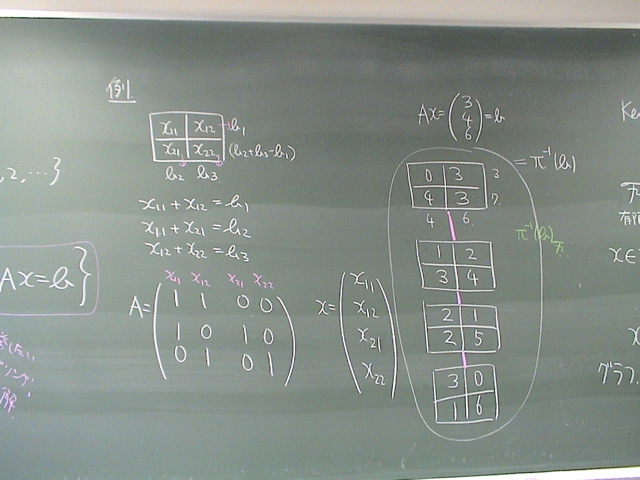 例)
x₁₁ x₁₂ → b₁
x₂₁ x₂₂ (b₂+b₃-b₁)
b₂ b₃
x₁₁ + x₁₂ = b₁
x₁₁ + x₂₁ = b₂
x₁₂ + x₂₂ = b₃
x₁₁ x₁₂ x₂₁ x₂₂
A = ( 1 1 0 0
1 0 1 0
0 1 0 1 )
x = ( x₁₁
x₁₂
x₂₁
x₂₂ )
Ax = ( 3
4
6 ) = b
= π⁻¹(b)
0 3 3
4 3 7
4 6
π⁻¹(b)
1 2
3 4
2 1
2 5
3 0
1 6
2, … }
Ax = b }
Ke
x∈
x
グラフ